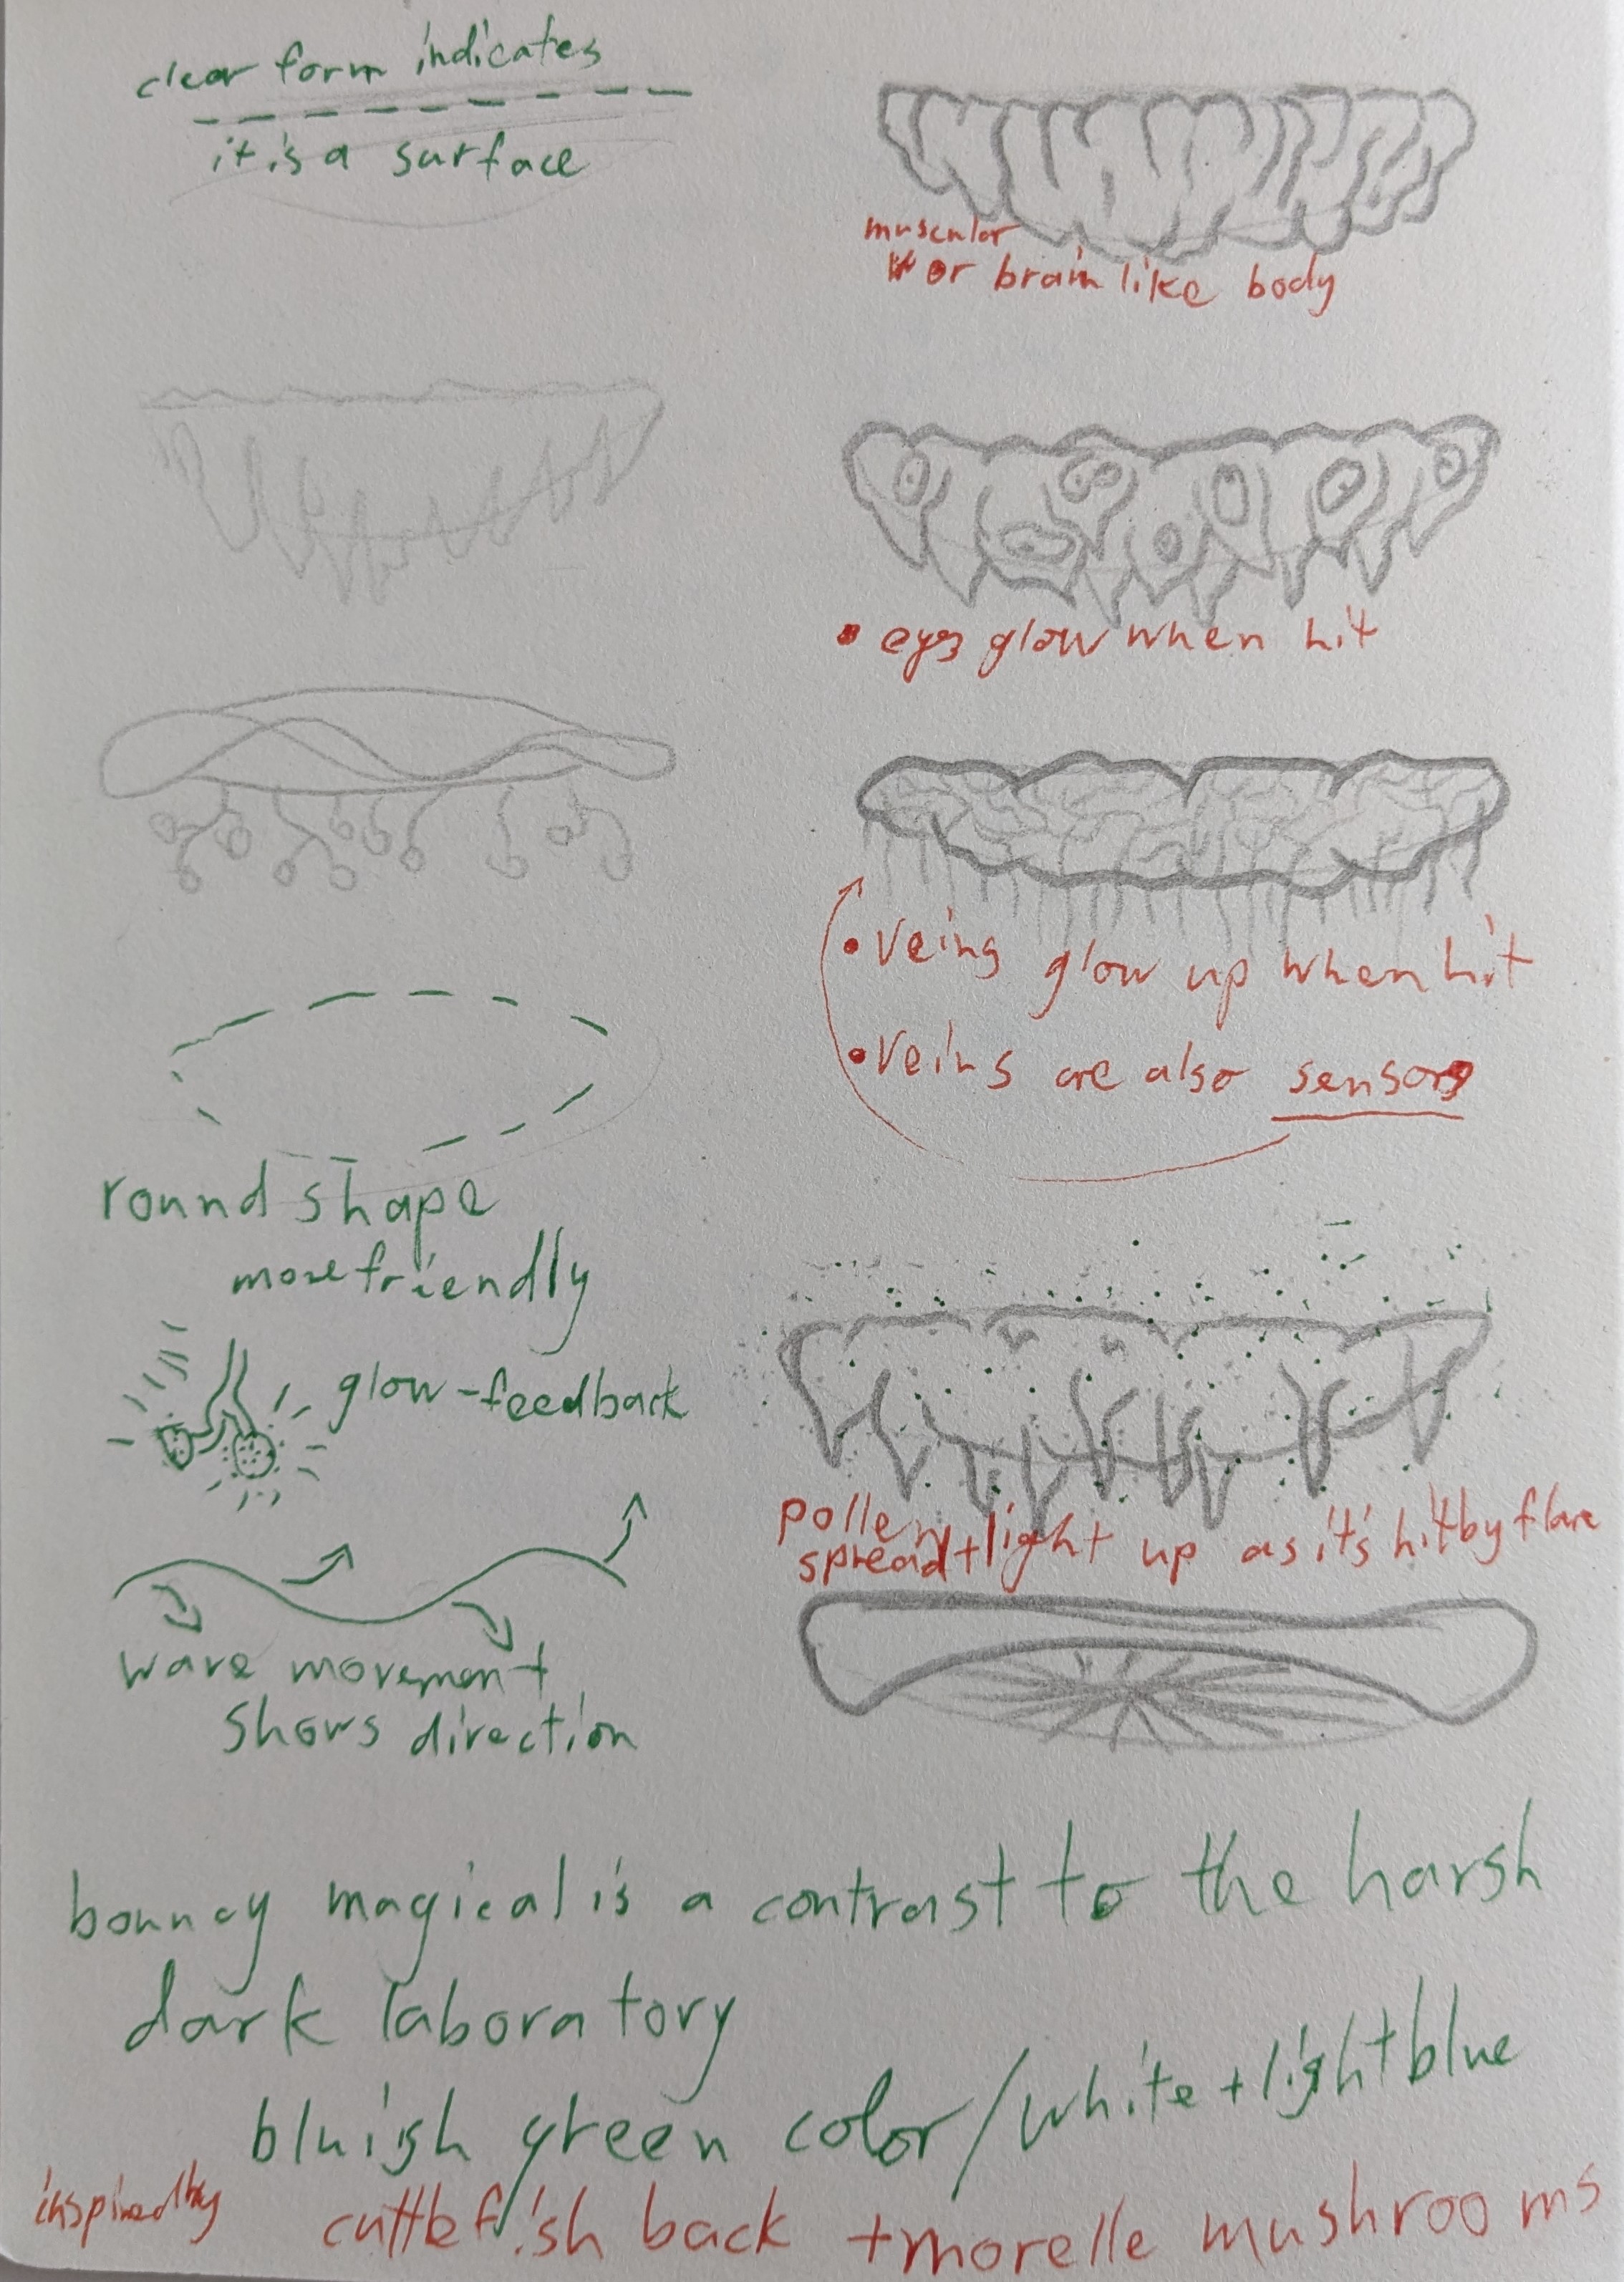 clear form indicates
it is a surface
muscular
or brain like body
• eyes glow when hit
• veins glow up when hit
• veins are also sensors
round shape
more friendly
glow-feedback
wave movement
shows direction
pollen
spread + light up as it's hit by flare
bouncy magical is a contrast to the harsh
dark laboratory
bluish green color / white + light blue
inspired by cuttlefish back + morelle mushrooms